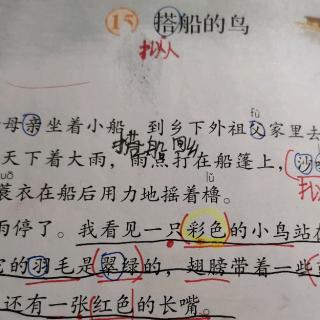 15 搭船的鸟
拟人
fǔ
母亲坐着小船，到乡下外祖父家里去
搭船回乡
天下着大雨，雨点打在船篷上，沙
拟
suō lǔ
蓑衣在船后用力地摇着橹。
雨停了。我看见一只彩色的小鸟站在
它的羽毛是翠绿的，翅膀带着一些
还有一张红色的长嘴。